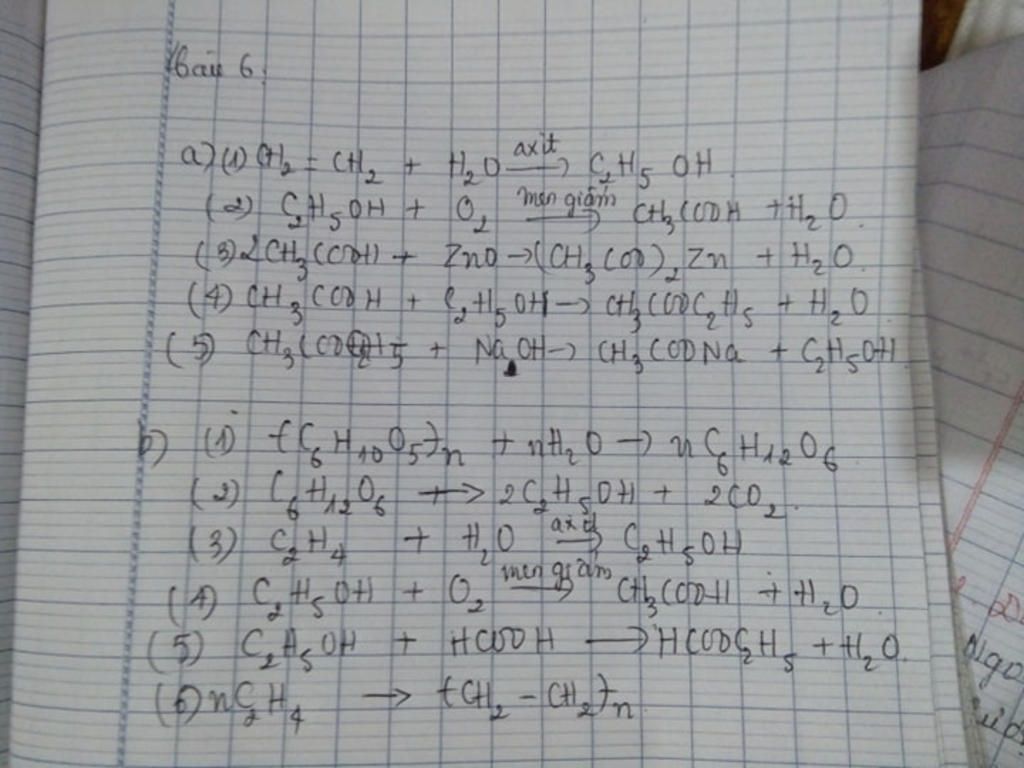 Bài 6.
a) (1) CH₂ = CH₂ + H₂O —axit→ C₂H₅OH
(2) C₂H₅OH + O₂ —men giấm→ CH₃COOH + H₂O.
(3) 2CH₃COOH + ZnO → (CH₃COO)₂Zn + H₂O.
(4) CH₃COOH + C₂H₅OH → CH₃COOC₂H₅ + H₂O
(5) CH₃COOC₂H₅ + NaOH → CH₃COONa + C₂H₅OH
b) (1) (C₆H₁₀O₅)n + nH₂O → nC₆H₁₂O₆
(2) C₆H₁₂O₆ → 2C₂H₅OH + 2CO₂.
(3) C₂H₄ + H₂O —axit→ C₂H₅OH
(4) C₂H₅OH + O₂ —men giấm→ CH₃COOH + H₂O.
(5) C₂H₅OH + HCOOH → HCOOC₂H₅ + H₂O.
(6) nC₂H₄ → (CH₂ - CH₂)n.